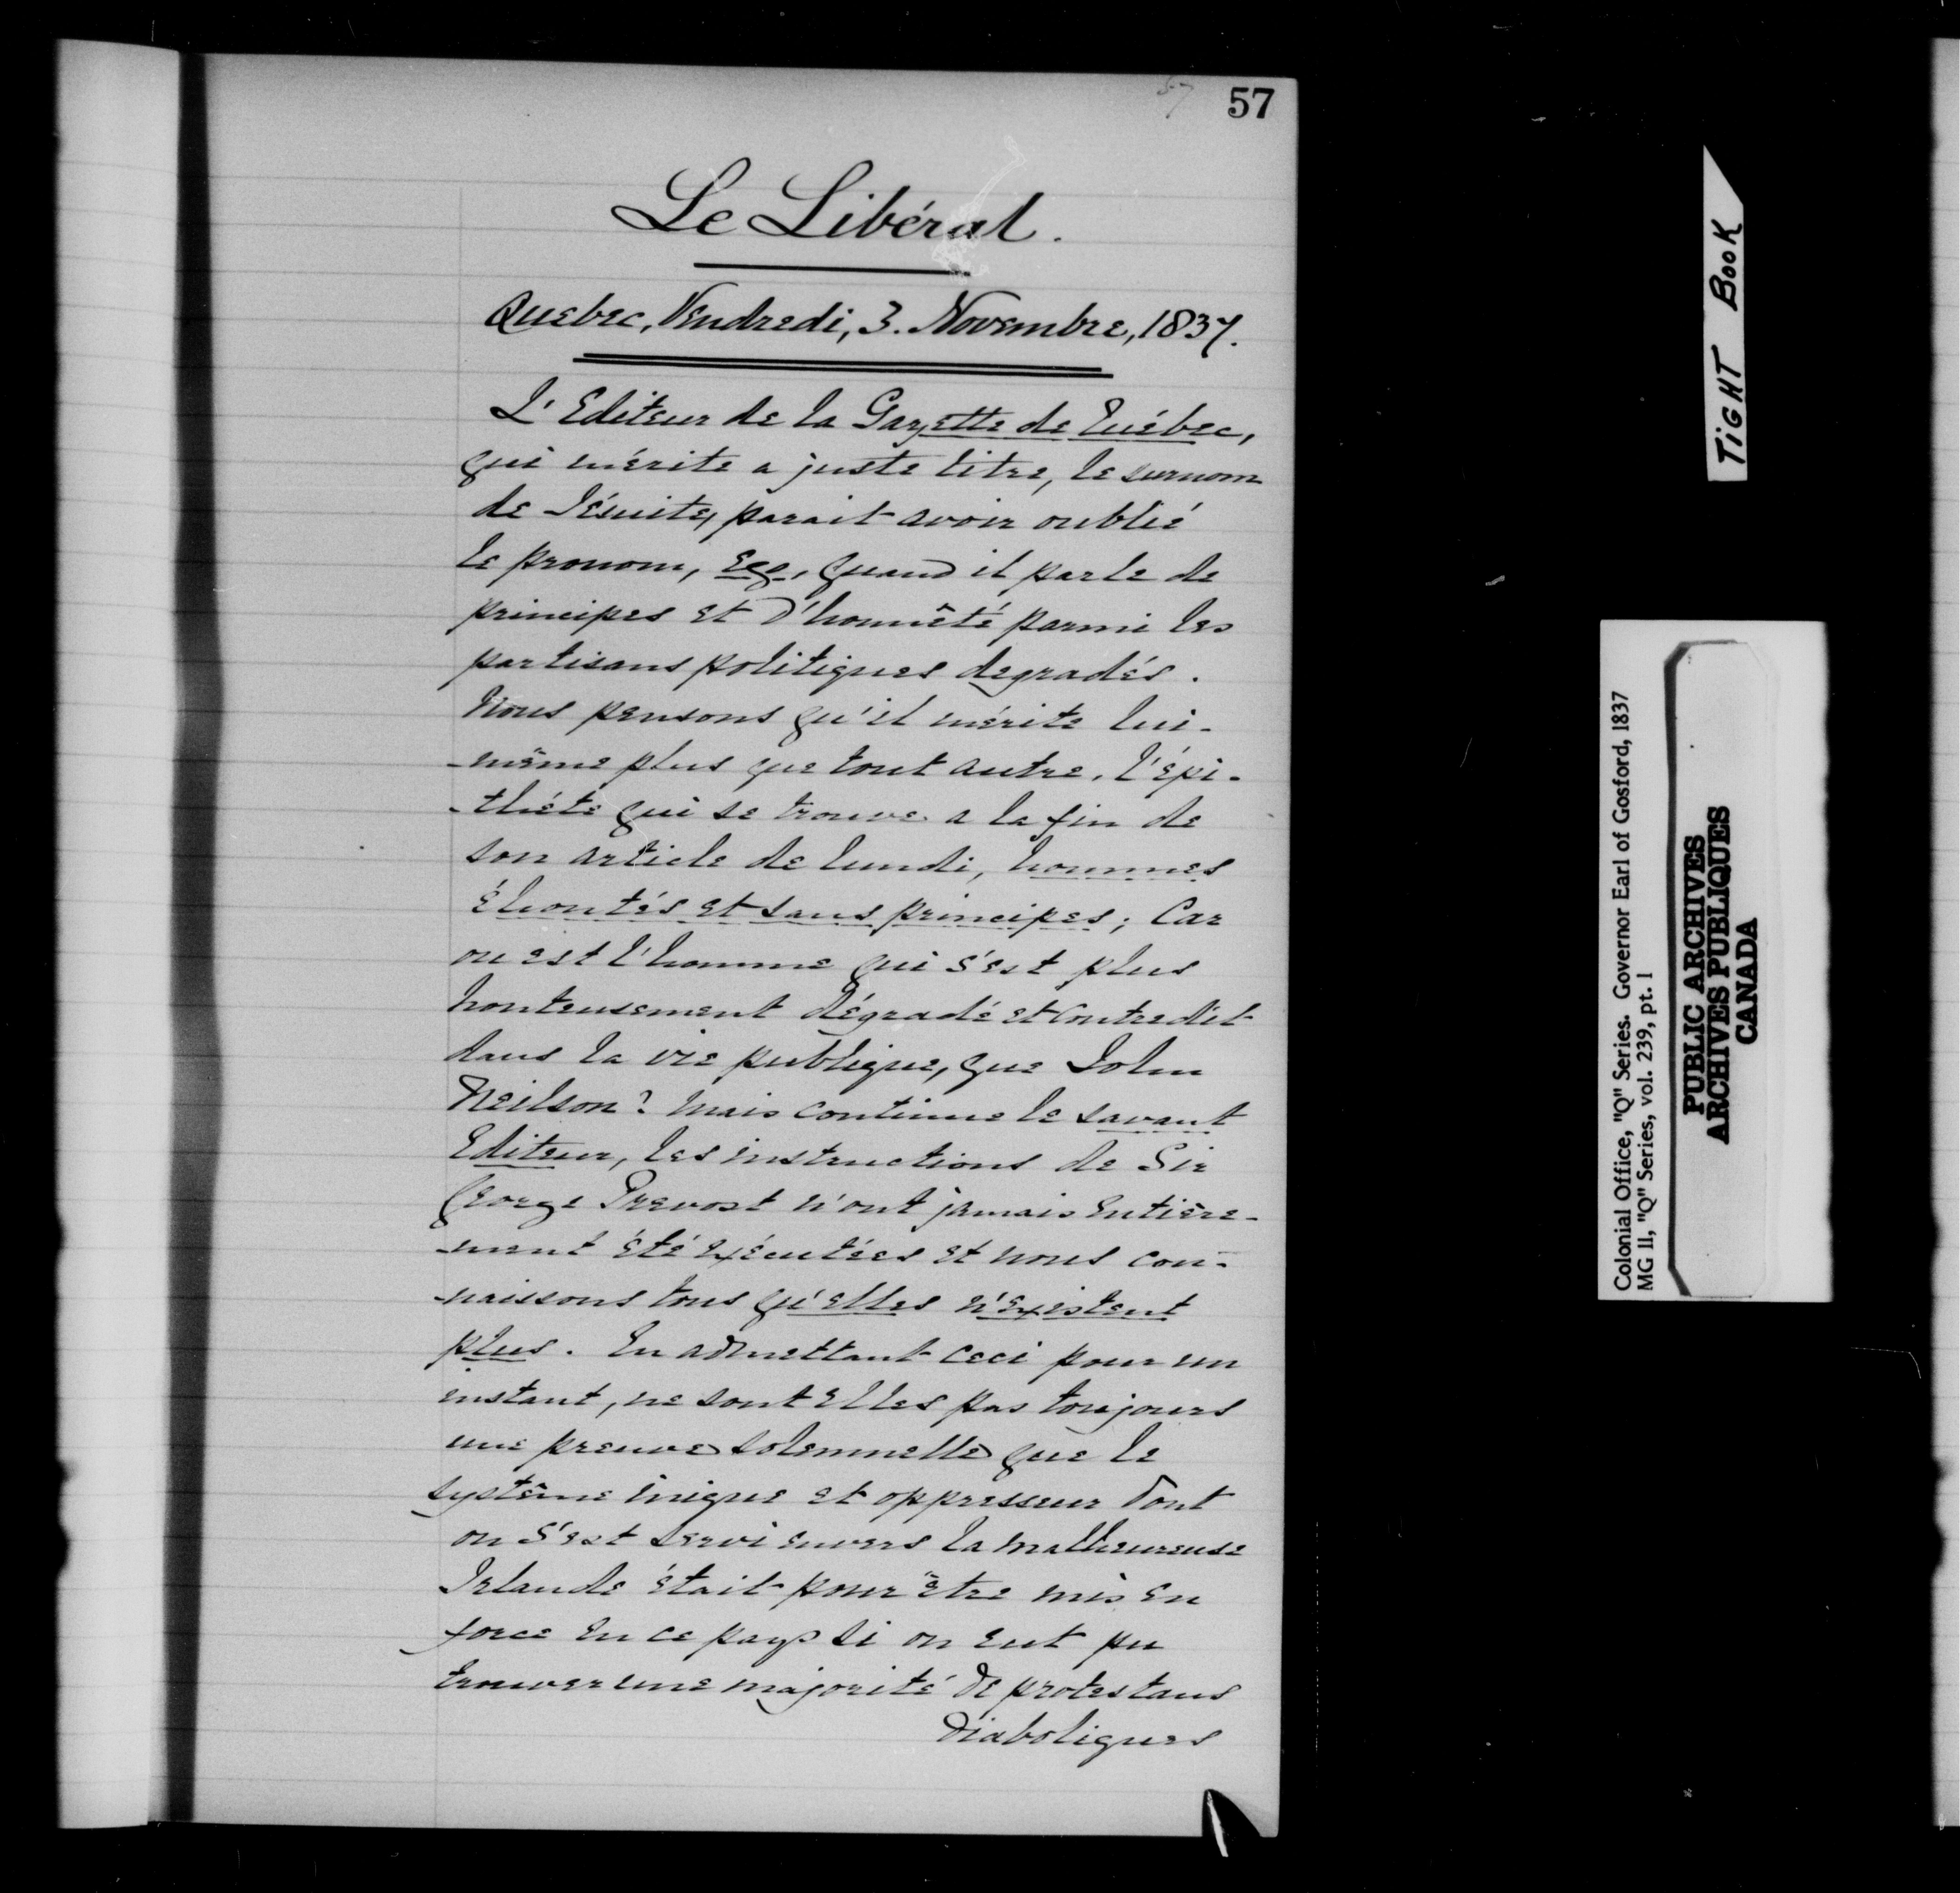 57
57
Le Libéral.
Quebec, Vendredi, 3. Novembre, 1837.
L'Editeur de la Gazette de Québec,
qui mérite a juste titre, le surnom
de Jésuite, parait avoir oublié
le pronom, Ego, quand il parle de
principes et d'honnêteté parmi les
partisans politiques degradés.
Nous pensons qu'il mérite lui-
-même plus que tout autre, l'épi-
-thète qui se trouve a la fin de
son article de lundi, hommes
éhontés et sans principes; Car
ou est l'homme qui s'est plus
honteusement dégradé et contredit
dans la vie publique, que John
Neilson? Mais continue le savant
Editeur, les instructions de Sir
George Prevost n'ont jamais entière-
-ment été exécutées et nous con-
-naissons tous qu'elles n'existent
plus. En admettant ceci pour un
instant, ne sont elles pas toujours
une preuve solemnelle que le
système inique et oppresseur dont
on s'est servi envers la malheureuse
Irlande était pour être mis en
force en ce pays si on eut pu
trouver une majorité de protestans
diaboliques
TIGHT BOOK
Colonial Office, "Q" Series. Governor Earl of Gosford, 1837
MG 11, "Q" Series, vol. 239, pt. 1
PUBLIC ARCHIVES
ARCHIVES PUBLIQUES
CANADA